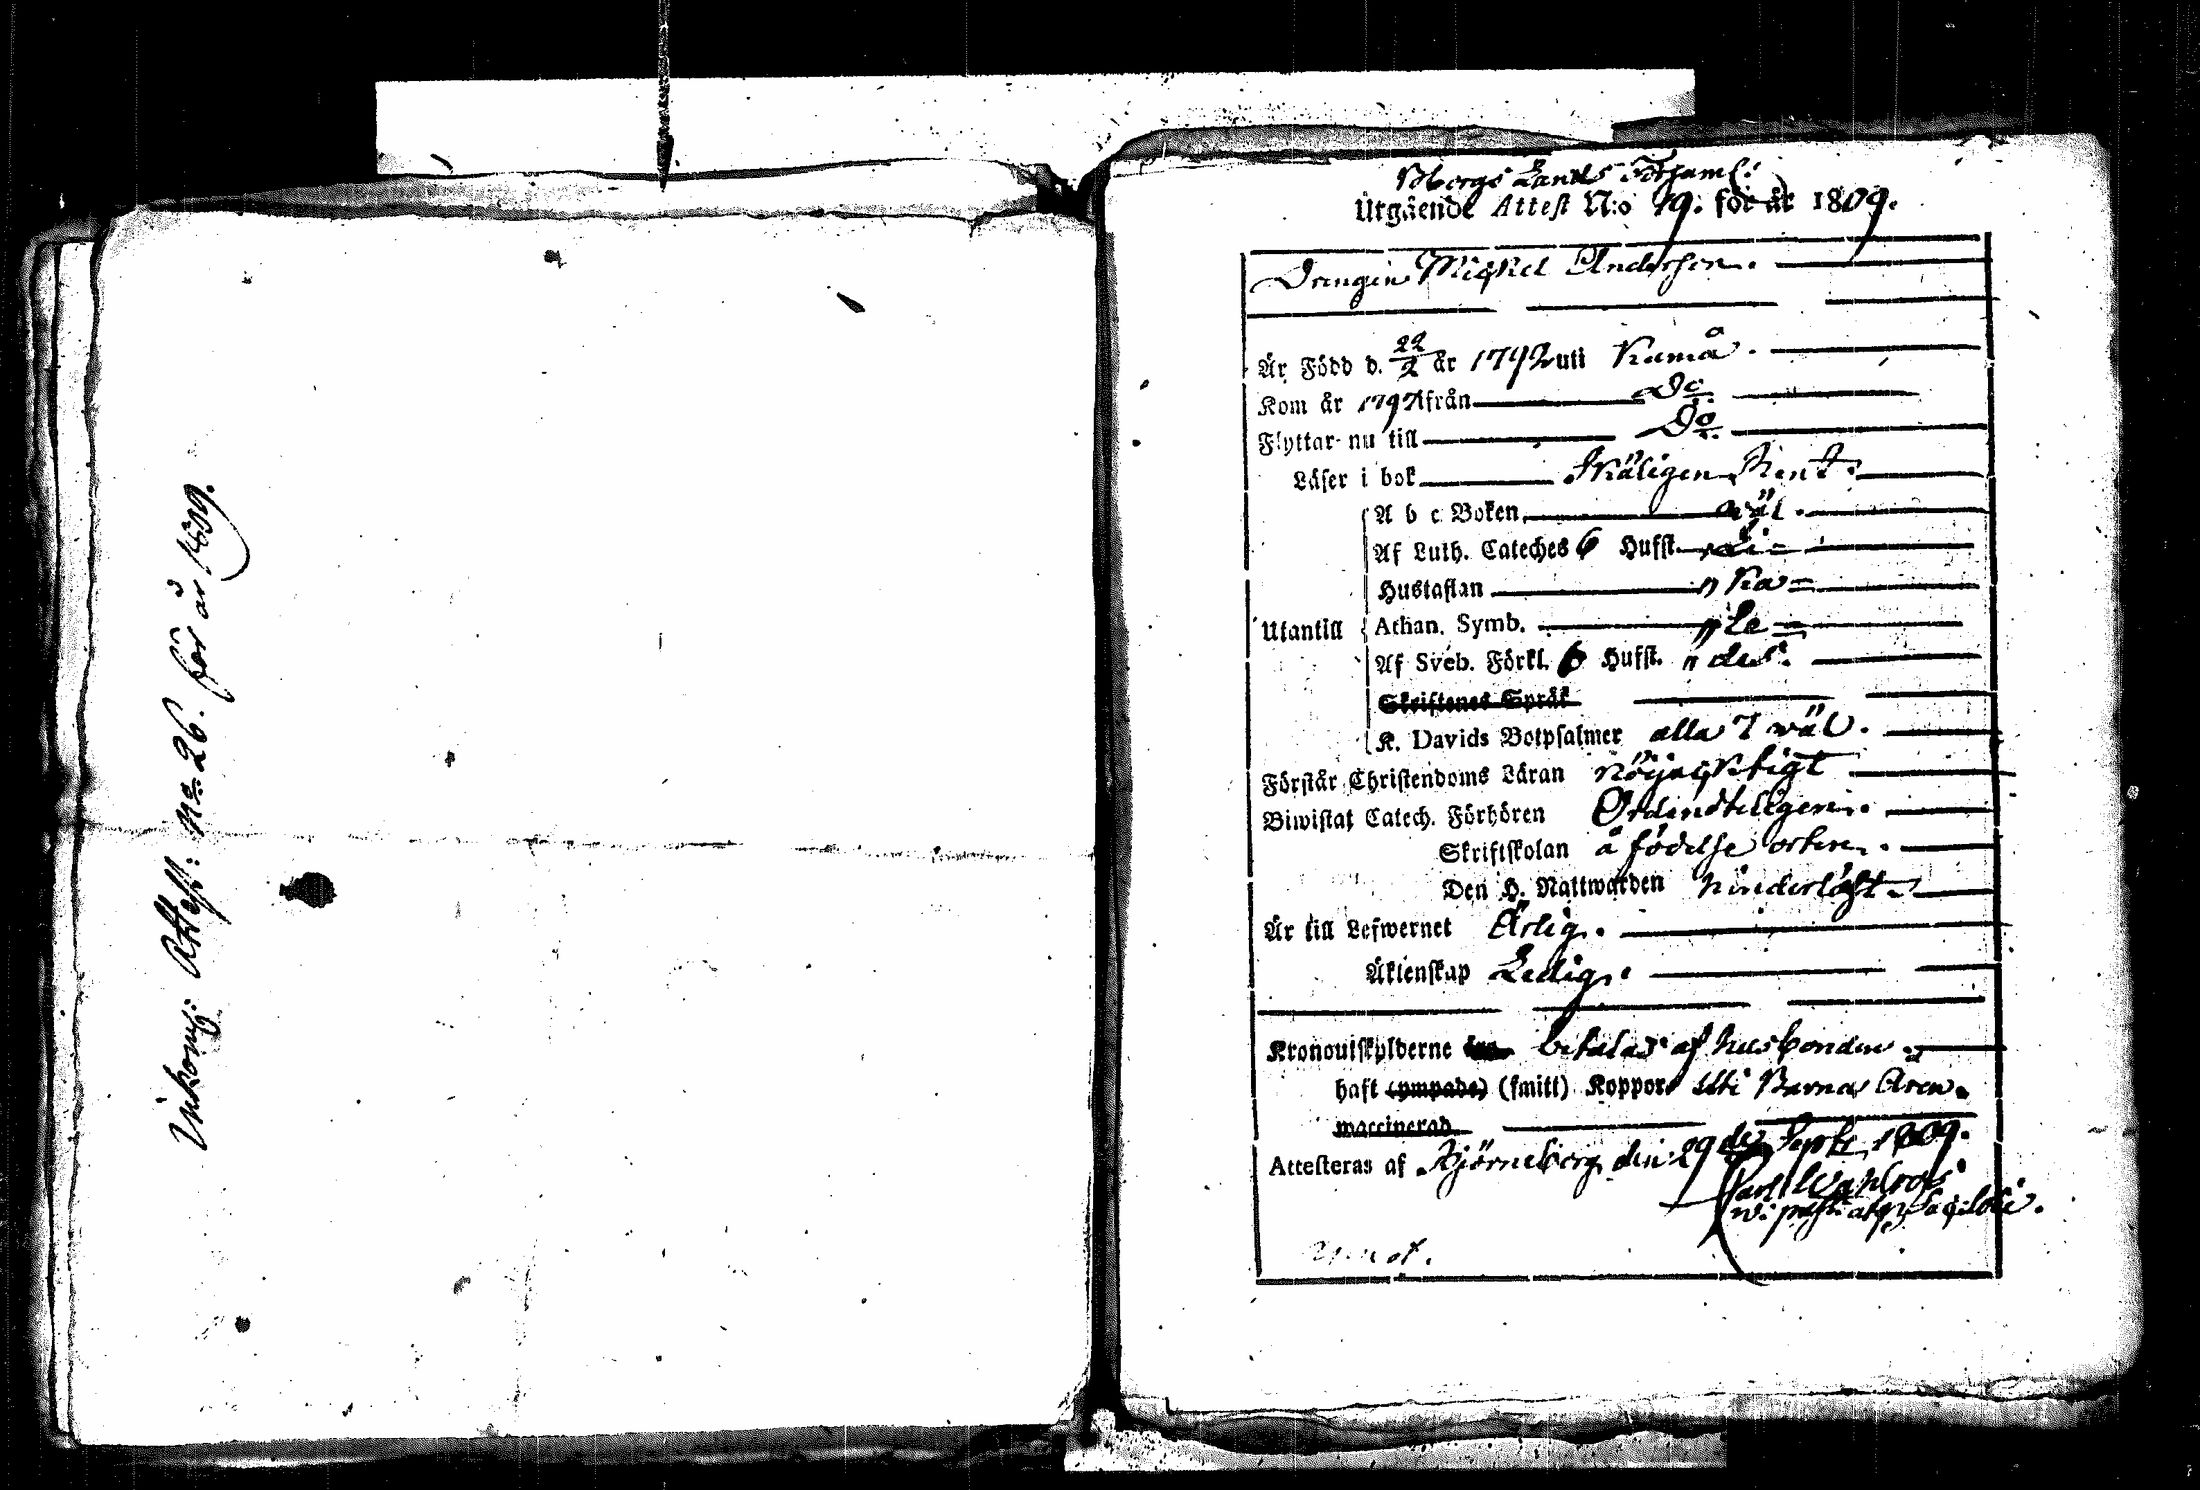 Inkom: Attest: No 26. för år 1809.
Bbergs Lands Församl:
Utgående Attest N:o 79. för år 1809.
Drengen Michel Andersson.
Är Född d. 22/2 år 1792 uti Kumå.
Kom år 1797 ifrån Do.
Flyttar nu till Do.
Läser i bok skäligen Rent.
A b c Boken wäl.
Af Luth. Cateches 6 Hufst.
Hustaflan
Utantill Athan. Symb.
Af Sveb. Förkl. 6 Hufst.
Skriftenes Språk
K. Davids Botpsalmer alla 7 wäl.
Förstår Christendoms Läran nöjachtigt
Biwistat Catech. Förhören Ordendteligen.
Skriftskolan å födelse orten.
Den H. Nattwarden hinderlöst.
Är till Lefwernet Ärlig.
Äktenskap Ledig.
Kronoutskylderne betalas af husbonden.
haft (ympade) (smitt) Koppor Uti Barna Åren.
waccinerad
Attesteras af Björneborg den 29de Sept. 1809.
Carl Wahlroos